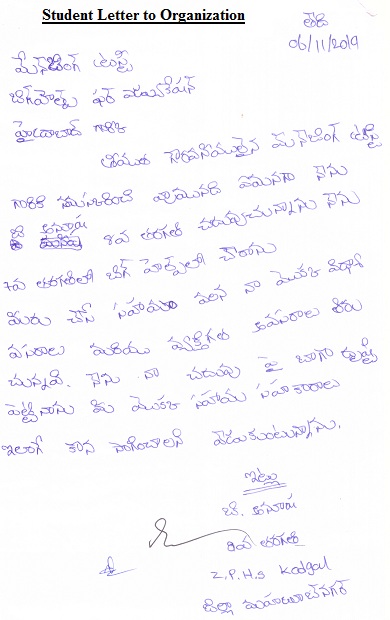 Student Letter to Organization
తేది
06/11/2019
మేనేజింగ్ ట్రస్టీ
బిగ్‌హెల్ప్ ఫర్ ఎడ్యుకేషన్
హైదరాబాద్ గారికి
శ్రీయుత గౌరవనీయులైన మేనేజింగ్ ట్రస్టీ
గారికి నమస్కరించి వ్రాయునది ఏమనగా నేను
8వ తరగతి చదువుచున్నాను నేను
7వ తరగతిలో బిగ్ హెల్ప్‌లో చేరాను
మీరు చేసే సహాయం వలన నా యొక్క విద్యా
వసరాలు మరియు వ్యక్తిగత అవసరాలు తీరు
చున్నవి. నేను నా చదువు పై బాగా దృష్టి
పెట్టినాను మీ యొక్క సహాయ సహకారాలు
ఇలాగే కొన సాగించాలని వేడుకుంటున్నాను.
ఇట్లు
8వ తరగతి
Z.P.H.S Kodgal
జిల్లా మహబూబ్ నగర్